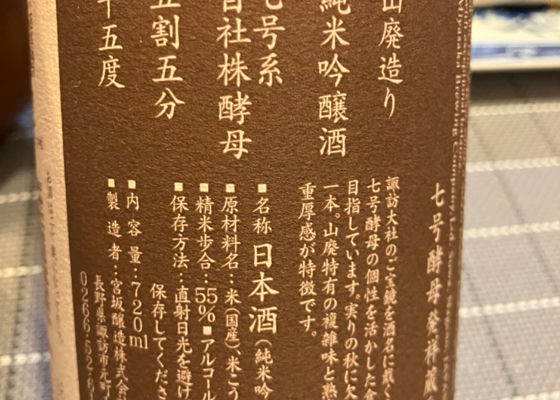 山廃造り
純米吟醸酒
七号系
自社株酵母
五割五分
十五度
七号酵母発祥蔵
諏訪大社のご宝鏡を酒名に戴く
七号酵母の個性を活かした食
目指しています。実りの秋に欠
一本。山廃特有の複雑味と熟
重厚感が特徴です。
■名称 日本酒(純米吟
■原材料名:米(国産)米こう
■精米歩合:55% ■アルコール
■保存方法:直射日光を避け
保存してくださ
■内容量:720ml
■製造者:宮坂醸造株式会
長野県諏訪市元町
0266-52-6
Brewing Company,Ltd.